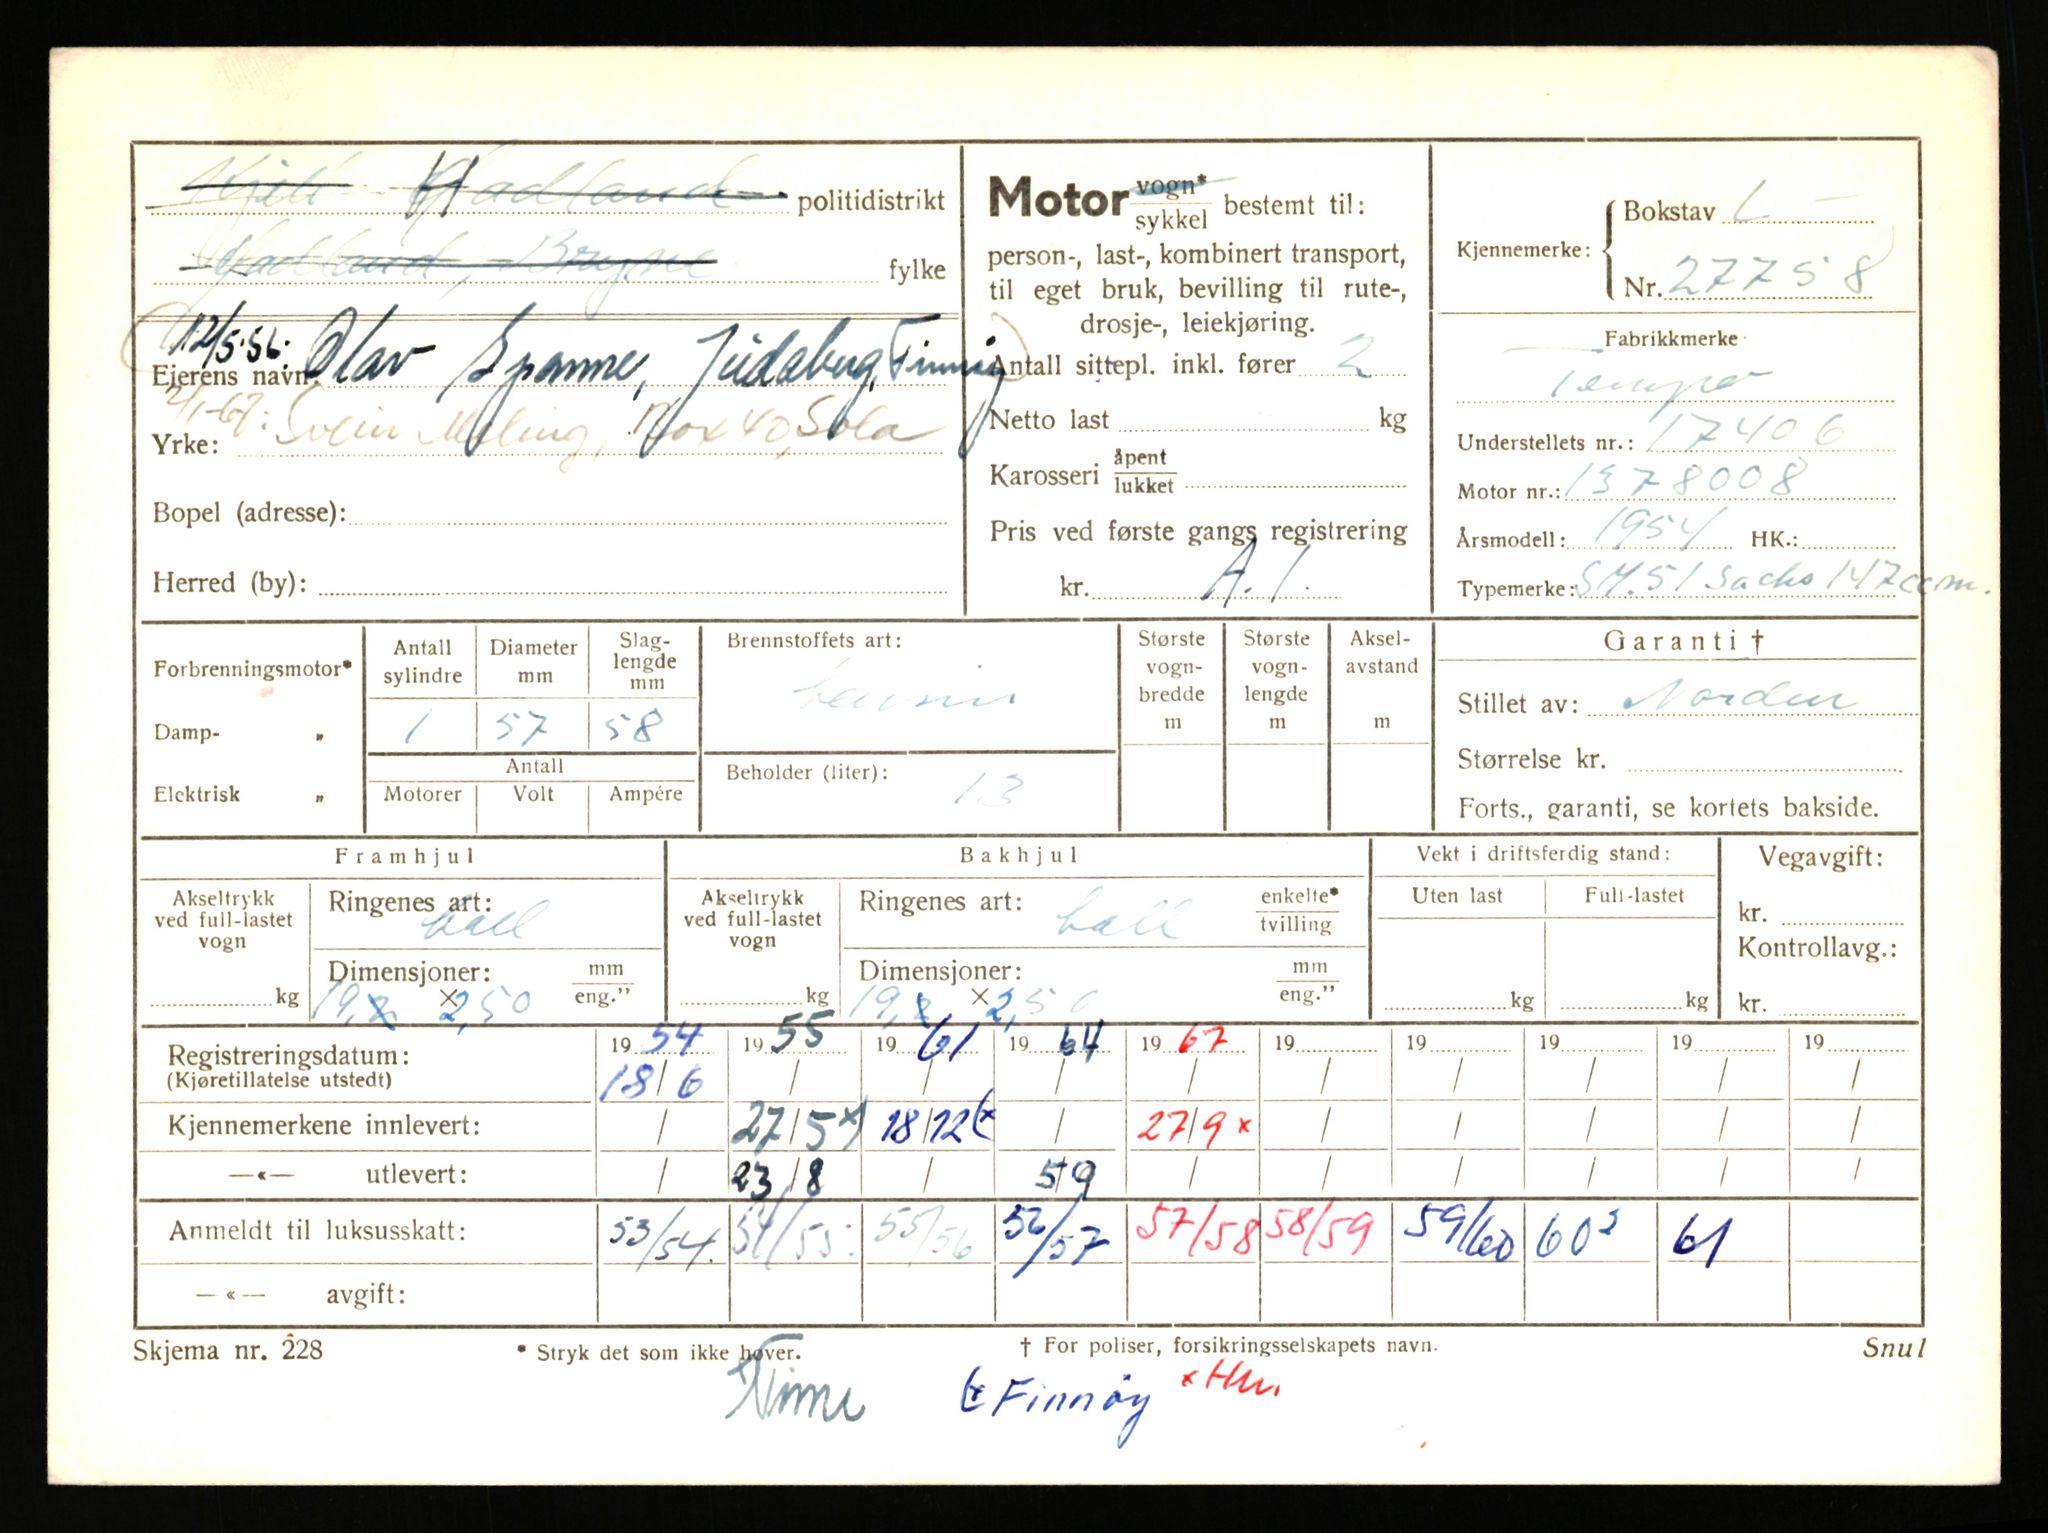 Kjell Hadland politidistrikt
Hadland, Bryne fylke
12/5.56. Olav Spanne, Judaberg, Finnøy
Eierens navn:
2/1-67: Svein Meling, Box 40, Sola
Yrke:
Bopel (adresse):
Herred (by):
Motor vogn* / sykkel bestemt til:
person-, last-, kombinert transport,
til eget bruk, bevilling til rute-,
drosje-, leiekjøring.
Antall sittepl. inkl. fører 2
Netto last kg
Karosseri åpent / lukket
Pris ved første gangs registrering
kr. A.I.
Kjennemerke: Bokstav L -
Nr. 27758
Fabrikkmerke
Tempo
Understellets nr.: 17406
Motor nr.: 1378008
Årsmodell: 1954 HK.:
Typemerke: SM.51 Sachs 147 ccm.
Forbrenningsmotor*
Damp- „
Elektrisk „
Antall sylindre Diameter mm Slag-lengde mm
1 57 58
Antall
Motorer Volt Ampére
Brennstoffets art:
bensin
Beholder (liter):
13
Største vogn-bredde m
Største vogn-lengde m
Aksel-avstand m
Garanti †
Stillet av: Norden
Størrelse kr.
Forts., garanti, se kortets bakside.
Framhjul
Akseltrykk ved full-lastet vogn kg
Ringenes art: ball
Dimensjoner: mm / eng."
19, x 2,50
Bakhjul
Akseltrykk ved full-lastet vogn kg
Ringenes art: ball enkelte* / tvilling
Dimensjoner: mm / eng."
19, x 2,50
Vekt i driftsferdig stand:
Uten last Full-lastet
kg kg
Vegavgift:
kr.
Kontrollavg.:
kr.
Registreringsdatum: 19 54 19 55 19 61 19 64 19 67 19 19 19 19 19
(Kjøretillatelse utstedt) 18/6 / / / / / / / / /
Kjennemerkene innlevert: / 27/5 x) 18/12 (x / 27/9 x / / / / /
—«— utlevert: / 23/8 / 5/9 / / / / /
Anmeldt til luksusskatt: 53/54. 54/55. 55/56 56/57 57/58 58/59 59/60 60² 61
—«— avgift:
Skjema nr. 228 * Stryk det som ikke høver. † For poliser, forsikringsselskapets navn. Snul
x) Time (x Finnøy x Hm.